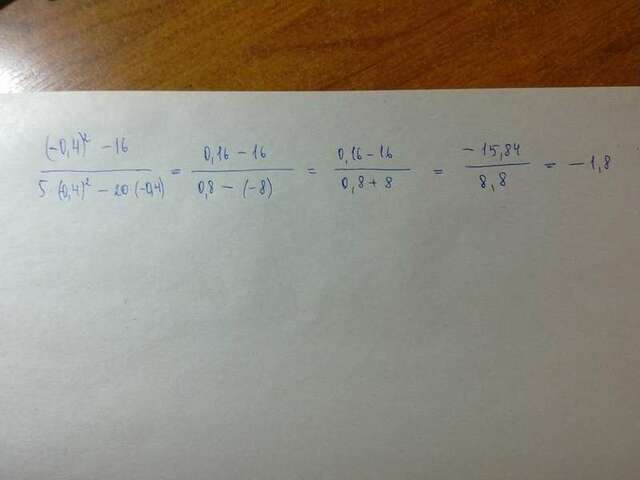 (-0,4)² - 16 / 5 (-0,4)² - 20 (-0,4) = 0,16 - 16 / 0,8 - (-8) = 0,16 - 16 / 0,8 + 8 = -15,84 / 8,8 = -1,8